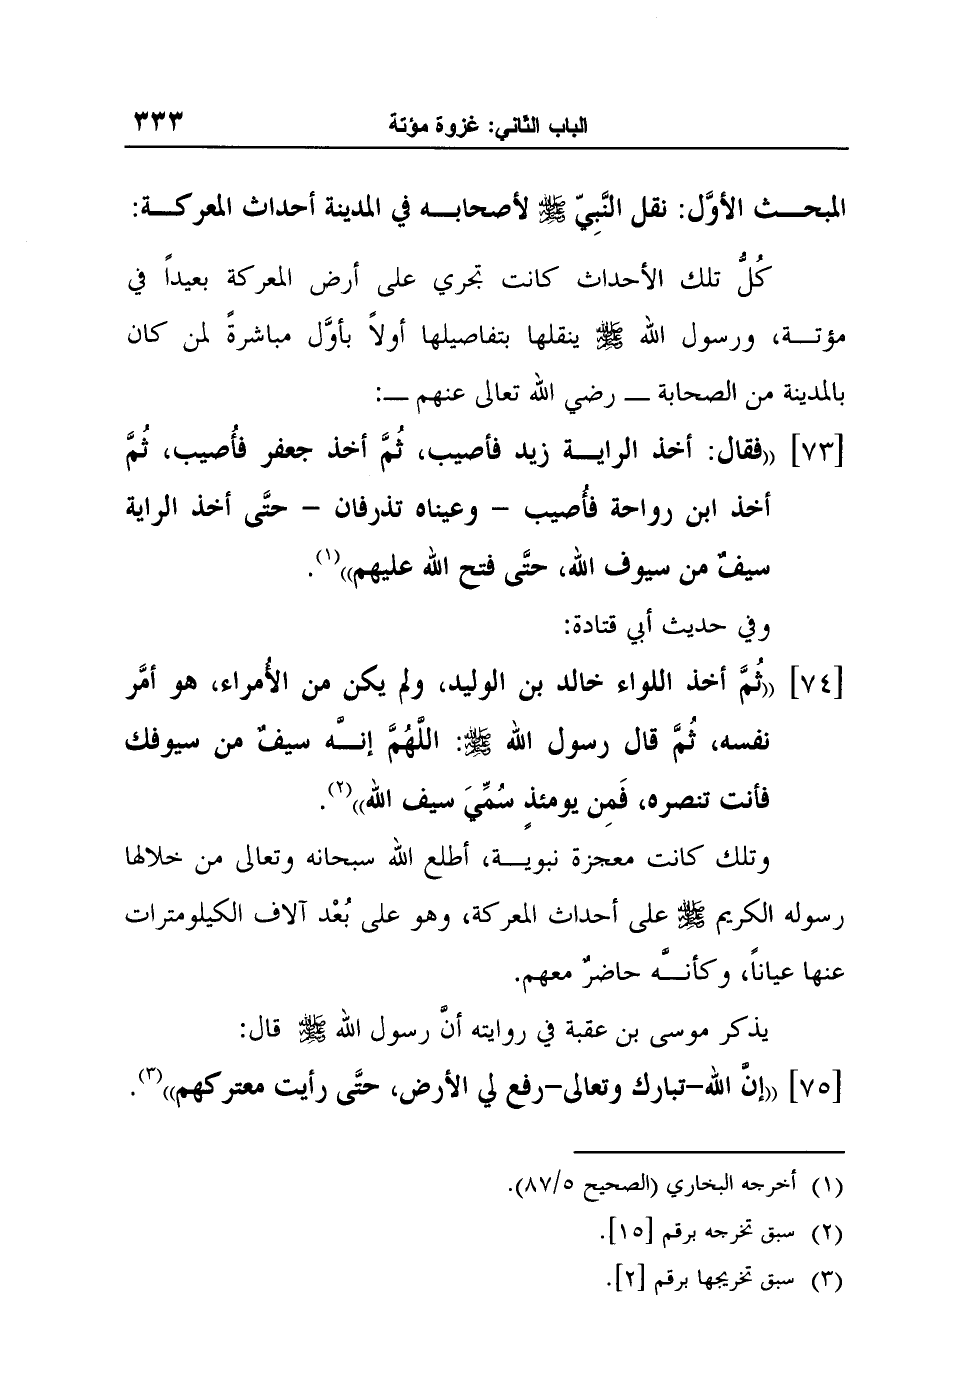 الباب الثاني: غزوة مؤتة ٣٣٣
المبحث الأوَّل: نقل النَّبِيّ ﷺ لأصحابه في المدينة أحداث المعركة:
كُلُّ تلك الأحداث كانت تجري على أرض المعركة بعيداً في
مؤتة، ورسول الله ﷺ ينقلها بتفاصيلها أولاً بأوَّل مباشرةً لمن كان
بالمدينة من الصحابة — رضي الله تعالى عنهم —:
[٧٣] ((فقال: أخذ الراية زيد فأصيب، ثُمَّ أخذ جعفر فأُصيب، ثُمَّ
أخذ ابن رواحة فأُصيب - وعيناه تذرفان - حتَّى أخذ الراية
سيفٌ من سيوف الله، حتَّى فتح الله عليهم))(١).
وفي حديث أبي قتادة:
[٧٤] ((ثُمَّ أخذ اللواء خالد بن الوليد، ولم يكن من الأُمراء، هو أمَّر
نفسه، ثُمَّ قال رسول الله ﷺ: اللَّهُمَّ إنَّه سيفٌ من سيوفك
فأنت تنصره، فَمِن يومئذٍ سُمِّيَ سيف الله))(٢).
وتلك كانت معجزة نبوية، أطلع الله سبحانه وتعالى من خلالها
رسوله الكريم ﷺ على أحداث المعركة، وهو على بُعْد آلاف الكيلومترات
عنها عياناً، وكأنَّه حاضرٌ معهم.
يذكر موسى بن عقبة في روايته أنَّ رسول الله ﷺ قال:
[٧٥] ((إنَّ الله-تبارك وتعالى-رفع لي الأرض، حتَّى رأيت معتركهم))(٣).
(١) أخرجه البخاري (الصحيح ٨٧/٥).
(٢) سبق تخرجه برقم [١٥].
(٣) سبق تخريجها برقم [٢].